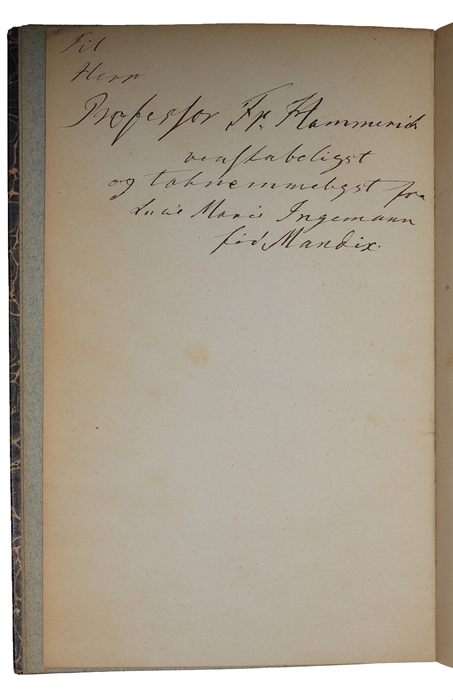 Til
Herr
Professor Fr. Hammerich
venskabeligst
og taknemmeligst fra
Lucie Marie Ingemann
fød Mandix.